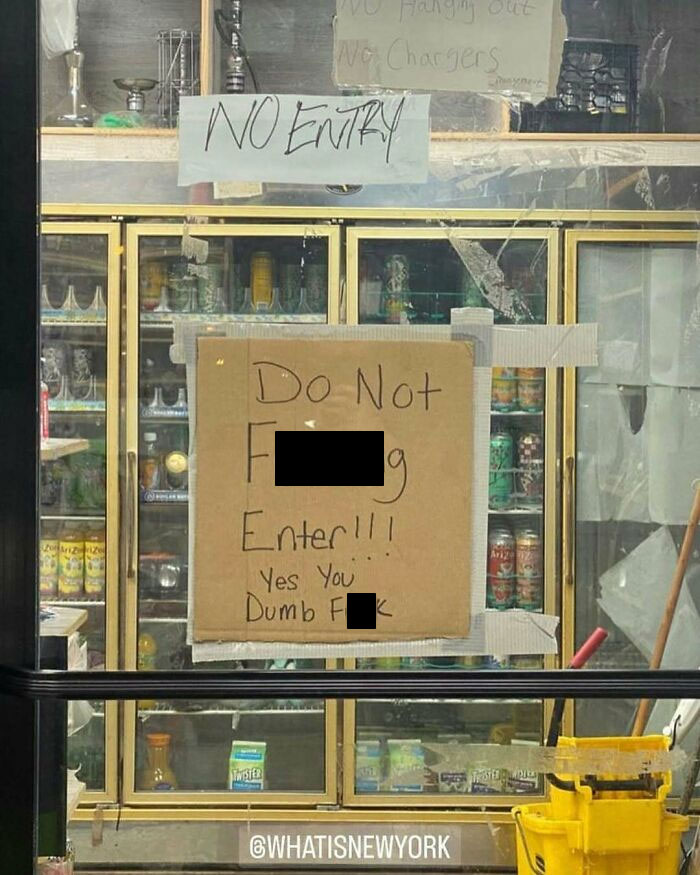 No Hanging out
No Chargers
management
NO ENTRY
Do Not
F g
Enter!!!
Yes You
Dumb F K
AriZona
AriZo
TWISTER
TWISTER
@WHATISNEWYORK